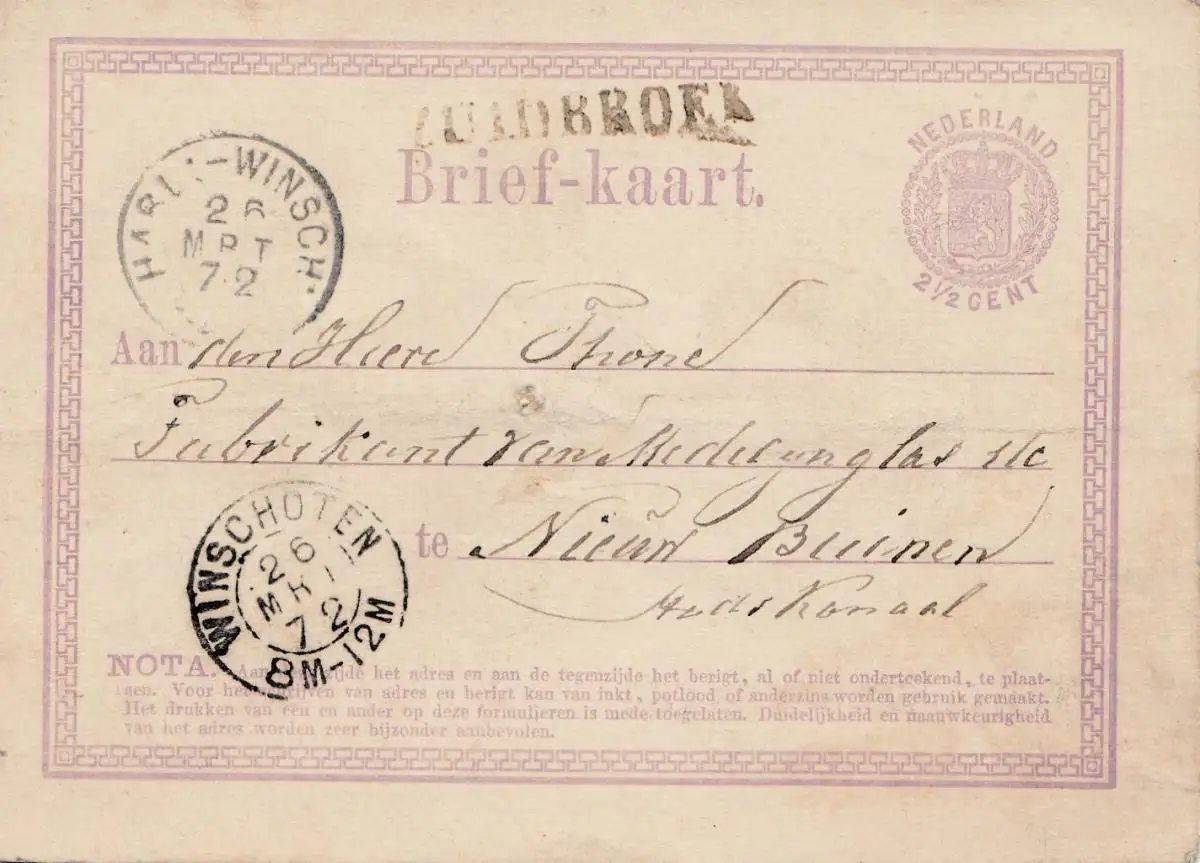 ZUIDBROEK
Brief-kaart.
NEDERLAND
2½ CENT
HARL:-WINSCH.
26
MRT
72
Aan den Heere Thone
Fabrikant van Medecynglas etc
te Nieuw Buinen
Stads Kanaal
WINSCHOTEN
26
MRT
72
8M-12M
NOTA. Aan zijde het adres en aan de tegenzijde het berigt, al of niet onderteekend, te plaat-
sen. Voor het schrijven van adres en berigt kan van inkt, potlood of anderzins worden gebruik gemaakt.
Het drukken van een en ander op deze formulieren is mede toegelaten. Duidelijkheid en naauwkeurigheid
van het adres worden zeer bijzonder aanbevolen.